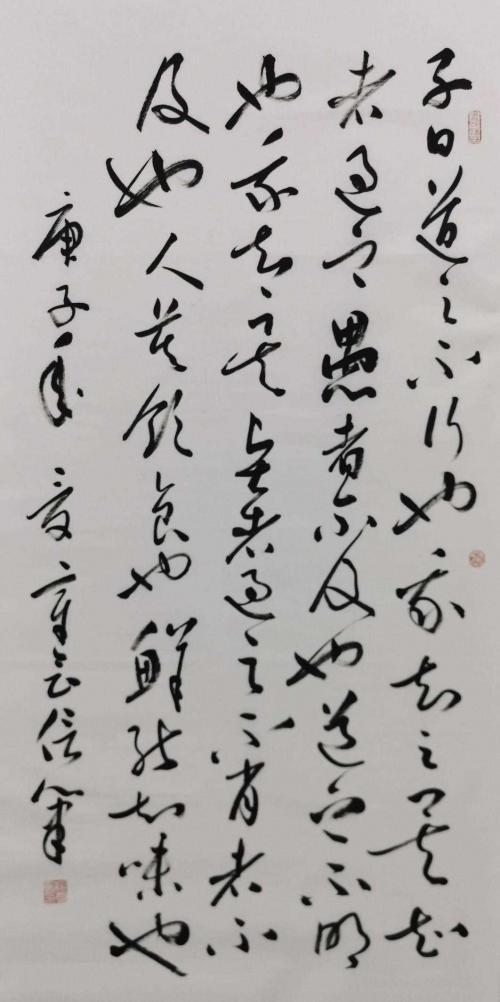 子曰道之不行也我知之矣知
者過之愚者不及也道之不明
也我知之矣賢者過之不肖者不
及也人莫飲食也鮮能知味也
庚子年夏